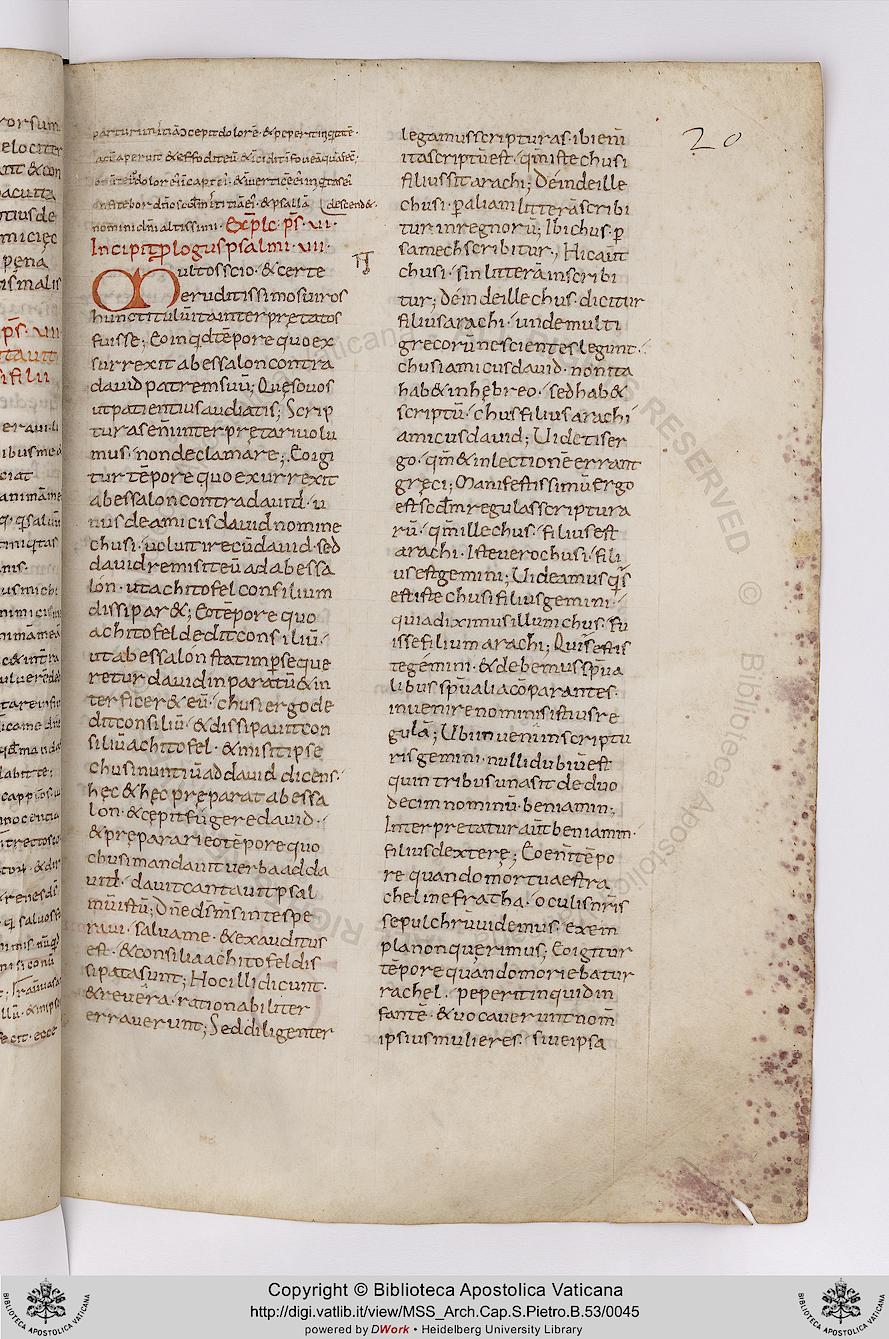 rorsum
elociter
acutta
tiusde
miciec
pena
ismalis
ps̄ · VII
parturiit iniusticiā ɔcepit dolorē · & peperit iniq̇tatē ·
lacū aperuit & effodit eū & incidit in foueā quā fec̄;
nomini dn̄i altissimi · Exp̄lc p̄s · VII ·
descend& ·
Incipit p̄logus psalmi · VII ·
Multos scio · & certe
eruditissimos uiros
hunc titulū ita interpretatos
fuisse; Eo inq̇d tēpore quo ex
surrexit abessalon contra
dauid patrem suū; Quęso uos
ut patientius audiatis; Scrip
turas enī interprętari uolu
mus · non declamare; Eo igi
tur tēpore quo exurrexit
abessalon contra dauid · u
nus de amicis dauid nomine
chusi · uoluit ire cū dauid · sed
dauid remisit eū ad abessa
lón · ut achitofel consilium
dissipar&; Eo tēpore quo
achitofel dedit consiliū ·
ut abessalón statim pseque
retur dauid inparatū & in
terficer& eū · chusi ergo de
dit consiliū · & dissipauit con
siliū achitofel · & misit ipse
chusi nuntiū ad dauid dicens ·
hęc & hęc pręparat abessa
lon · & cępit fúgere dauid ·
& prępara ri eo tēpore quo
chusi mandauit uerba ad da
uid · dauit cantauit psal
mū istū; Dn̄e ds̄ ms̄ in te spe
raui · saluame · & exauditus
est · & consilia achitofel dis
sipata sunt; Hoc illi dicunt ·
& reuéra · rationabiliter
errauerunt; Sed diligenter
legamus scripturas · ibi enī
ita scriptū est · qm̄ iste chusi
filius sit arachi; Déinde ille
chusi · p̱ aliam litterā scribi
tur in regnorū; Ibi chus · p̱
samech scribitur; Hic aūt
chusi · sin litterā inscribi
tur; Déinde ille chus · dicitur
filius arachi · unde multi
grecorū nescientes legunt ·
chusi amicus dauid · non ita
hab& in hębreo · sed hab&
scriptū · chus filius arachi
amicus dauid; Uidetis er
go · qm̄ & in lectionē errant
gręci; Manifestissimū ergo
est scd̄m regulas scriptura
rū · qm̄ ille chus · filius est
arachi · Iste uero chusi · fili
us est gemini; Uideamus q̇s
est iste chusi filius gemini ·
quia diximus illum chus · fu
isse filium arachi; Quis est is
te gémini · & debemus spūa
libus spūalia cōparantes ·
inuenire nominis istius re
gulā; Ubi inuenī in scriptu
ris gemini · nulli dubiū est
quin tribus una sit de duo
decim nominū · beniamin;
Interpretatur aūt beniamin ·
filius dexterę; Eo enī tēpo
re quando mórtua est ra
chel in efratha · oculis nr̄is
sepulchrū uidemus · exem
pla non querimus; Eo igitur
tēpore quando moriebatur
rachel · peperit inquid in
fantē · & uocauerunt nom̄
ipsius mulieres · siue ipsa
20
Copyright © Biblioteca Apostolica Vaticana
http://digi.vatlib.it/view/MSS_Arch.Cap.S.Pietro.B.53/0045
powered by DWork • Heidelberg University Library
BIBLIOTECA APOSTOLICA VATICANA
BIBLIOTECA APOSTOLICA VATICANA